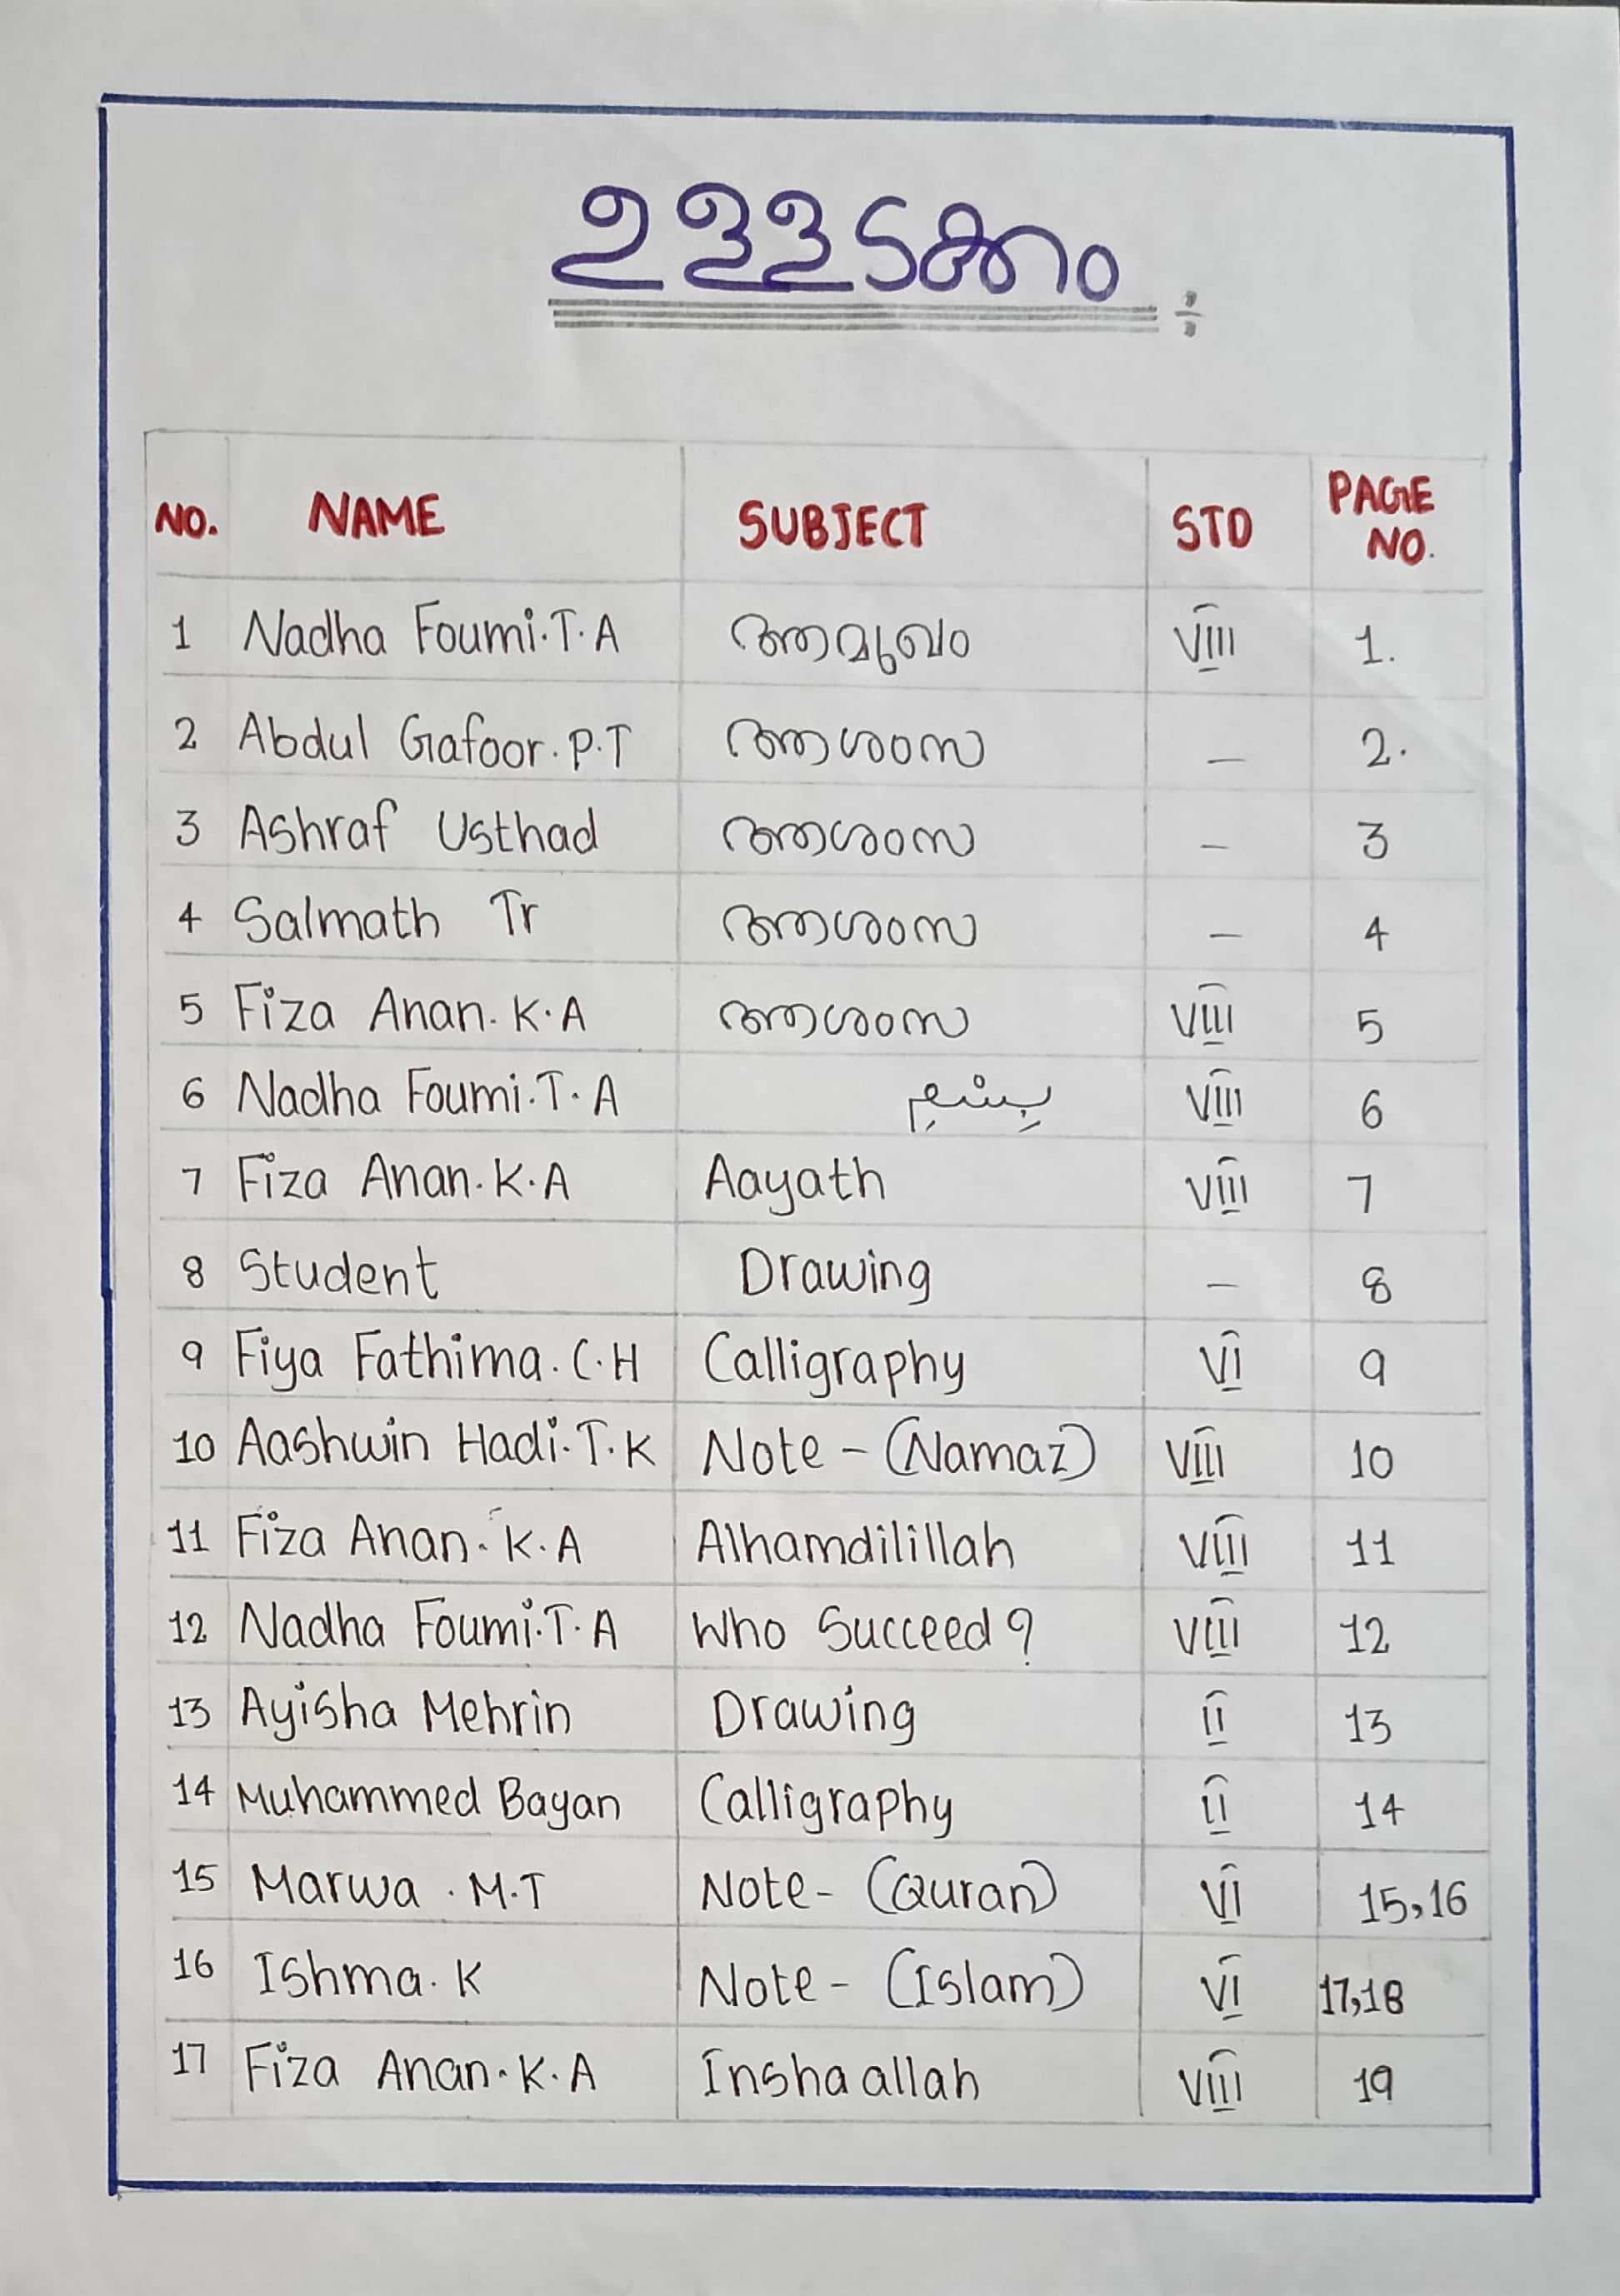 ഉള്ളടക്കം ÷
NO. NAME SUBJECT STD PAGE NO.
1 Nadha Foumi.T.A ആമുഖം VIII 1.
2 Abdul Gafoor.P.T ആശംസ - 2.
3 Ashraf Usthad ആശംസ - 3
4 Salmath Tr ആശംസ - 4
5 Fiza Anan.K.A ആശംസ VIII 5
6 Nadha Foumi.T.A بِسْمِ VIII 6
7 Fiza Anan.K.A Aayath VIII 7
8 Student Drawing - 8
9 Fiya Fathima.C.H Calligraphy VI 9
10 Aashwin Hadi.T.K Note - (Namaz) VIII 10
11 Fiza Anan.K.A Alhamdilillah VIII 11
12 Nadha Foumi.T.A Who Succeed? VIII 12
13 Ayisha Mehrin Drawing II 13
14 Muhammed Bayan Calligraphy II 14
15 Marwa .M.T Note- (Quran) VI 15,16
16 Ishma.K Note- (Islam) VI 17,18
17 Fiza Anan.K.A Inshaallah VIII 19